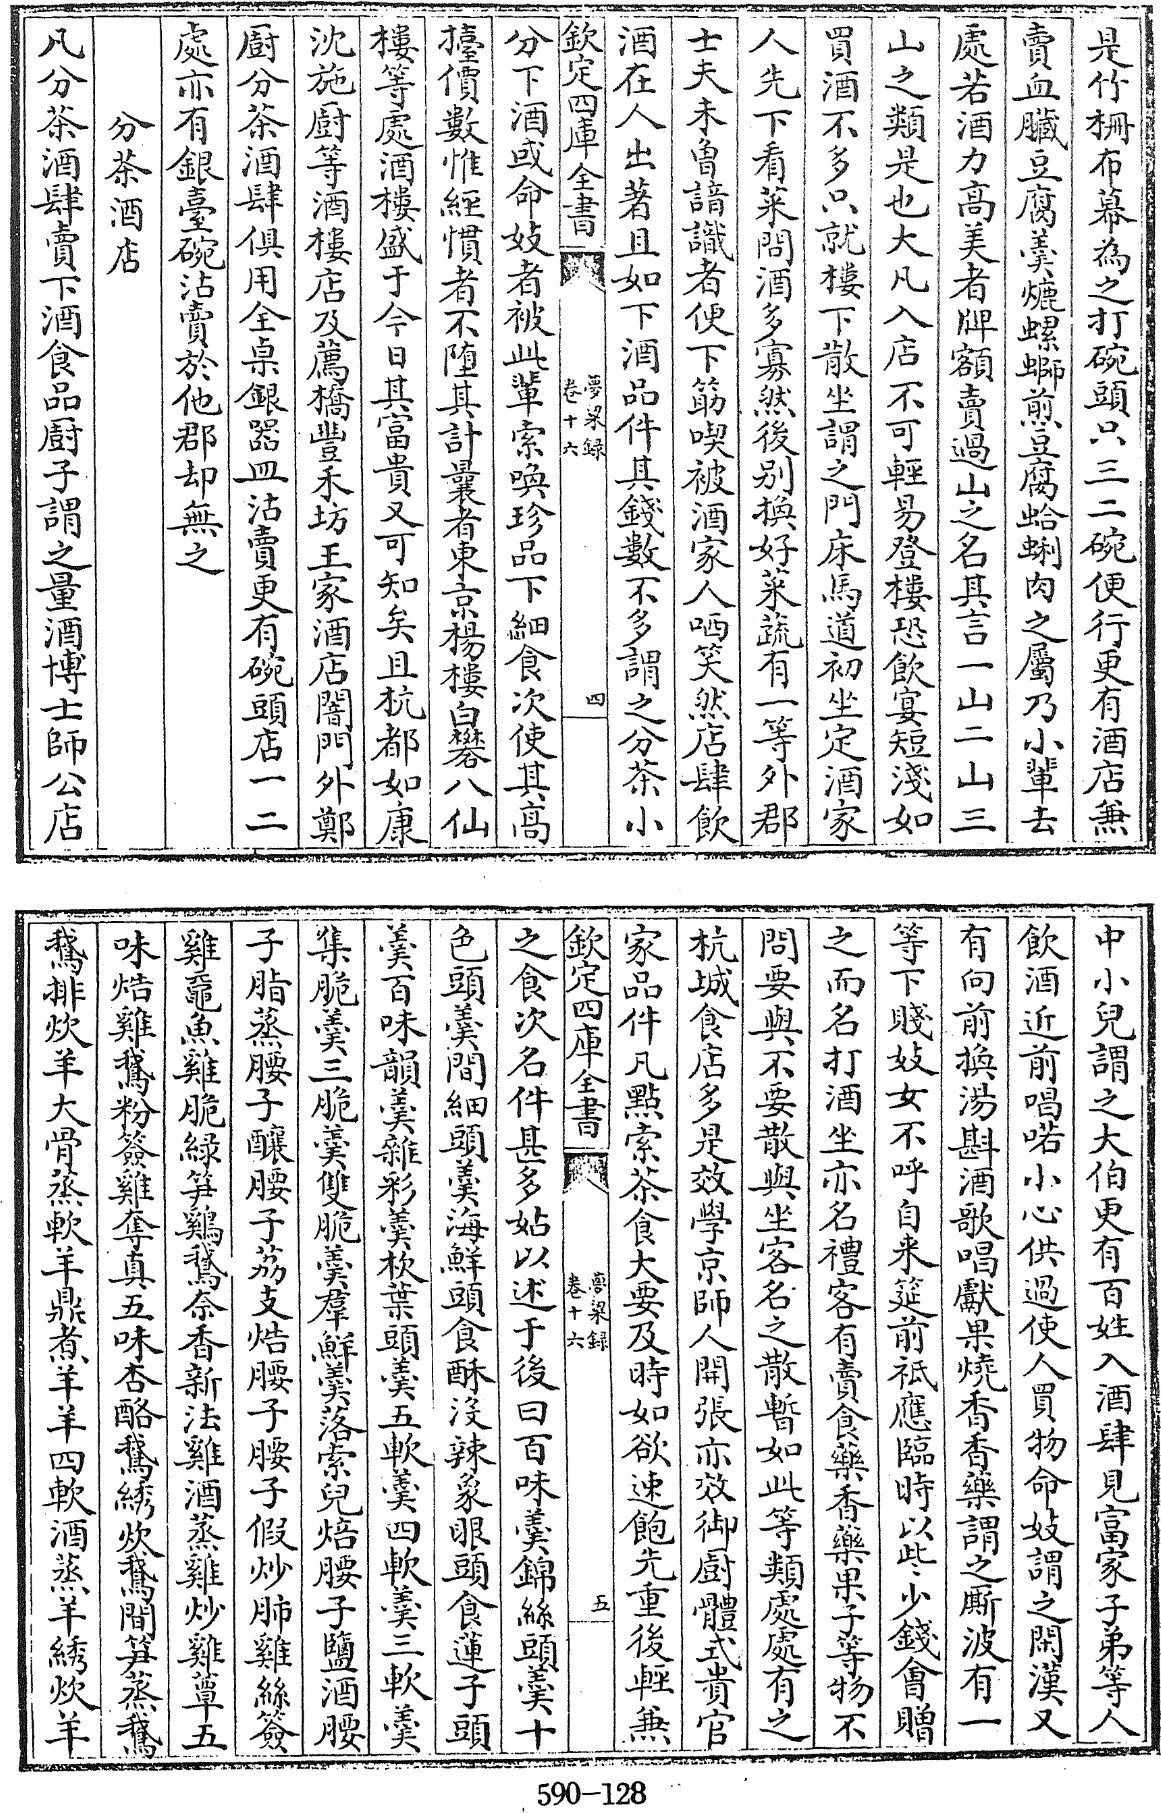 是竹柵布幕為之打碗頭只三二碗便行更有酒店兼
賣血臟豆腐羮爊螺螄煎豆腐蛤蜊肉之屬乃小輩去
處若酒力高美者牌額賣過山之名其言一山二山三
山之類是也大凡入店不可輕易登樓恐飲宴短淺如
買酒不多只就樓下散坐謂之門床馬道初坐定酒家
人先下看菜問酒多寡然後别換好菜蔬有一等外郡
士夫未曽諳識者便下筯喫被酒家人哂笑然店肆飲
酒在人出著且如下酒品件其錢數不多謂之分茶小
欽定四庫全書
夢梁録
卷十六
四
分下酒或命妓者被此輩索喚珍品下細食次使其高
擡價數惟經慣者不墮其計曩者東京楊樓白礬八仙
樓等處酒樓盛于今日其富貴又可知矣且杭都如康
沈施厨等酒樓店及薦橋豐禾坊王家酒店闇門外鄭
厨分茶酒肆俱用全桌銀器皿沽賣更有碗頭店一二
處亦有銀臺碗沽賣於他郡却無之
分茶酒店
凡分茶酒肆賣下酒食品厨子謂之量酒博士師公店
中小兒謂之大伯更有百姓入酒肆見富家子弟等人
飲酒近前唱喏小心供過使人買物命妓謂之閑漢又
有向前換湯斟酒歌唱獻果燒香香藥謂之厮波有一
等下賤妓女不呼自来筵前祇應臨時以些少錢會贈
之而名打酒坐亦名禮客有賣食藥香藥果子等物不
問要與不要散與坐客名之散暫如此等類處處有之
杭城食店多是效學京師人開張亦效御厨體式貴官
家品件凡點索茶食大要及時如欲速飽先重後輕兼
欽定四庫全書
夢梁録
卷十六
五
之食次名件甚多姑以述于後曰百味羮錦絲頭羮十
色頭羮間細頭羮海鮮頭食酥没辣象眼頭食蓮子頭
羮百味韻羮雜彩羮枕葉頭羮五軟羮四軟羮三軟羮
集脆羮三脆羮雙脆羮羣鮮羮落索兒焙腰子鹽酒腰
子脂蒸腰子釀腰子荔支焅腰子腰子假炒肺雞絲簽
雞黿魚雞脆緑笋鷄鵞奈香新法雞酒蒸雞炒雞蕈五
味焅雞鵞粉簽雞奪真五味杏酪鵞綉炊鵞間笋蒸鵞
鵞排炊羊大骨蒸軟羊鼎煮羊羊四軟酒蒸羊綉炊羊
590-128